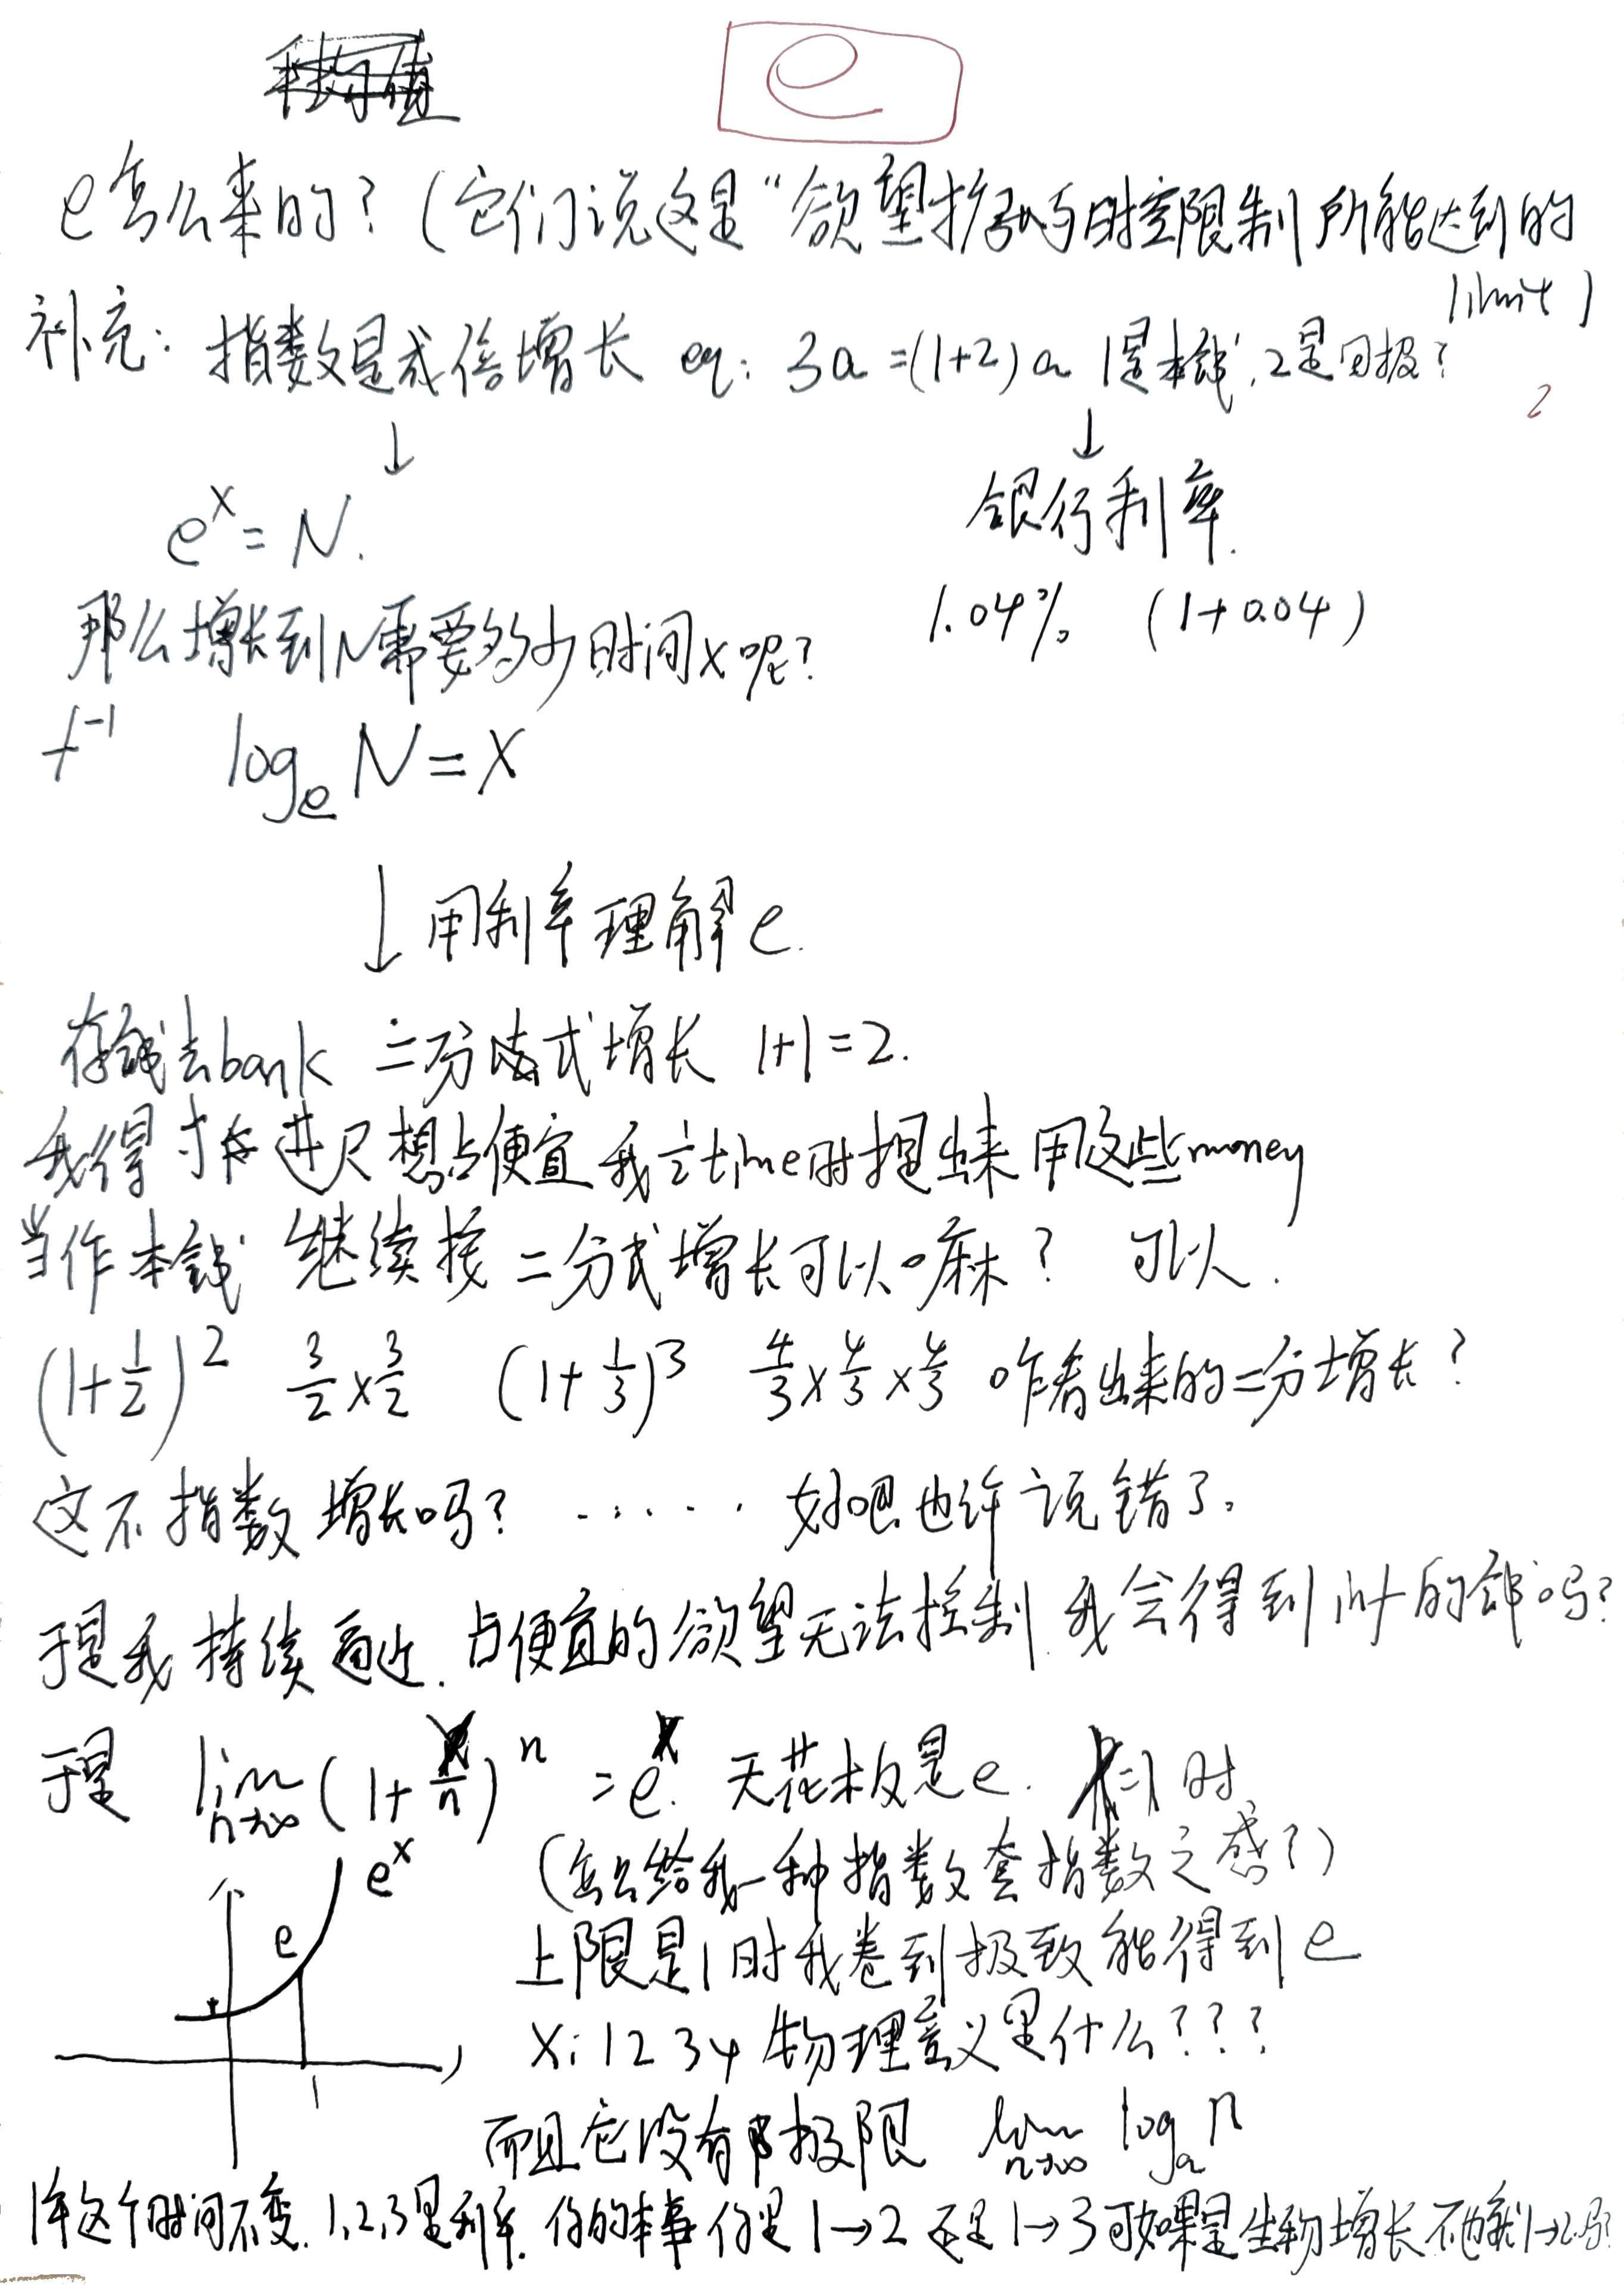 e
e怎么来的？(它们说这是“欲望扩张与时空限制所能达到的
limit)
补充：指数是成倍增长 eg: 3a=(1+2)a 1是本钱，2是回报？
2
↓ ↓
e^x=N. 银行利率.
那么增长到N需要多少时间x呢？ 1.04% (1+0.04)
f^-1 log_e N=x
↓用利率理解e.
存钱去bank 二分裂式增长 1+1=2.
我得寸进尺想占便宜 我½time时提出来用这些money
当作本钱 继续按二分式增长可以嘛？ 可以.
(1+1/2)^2 3/2×3/2 (1+1/3)^3 4/3×4/3×4/3 咋看出来的二分增长？
这不指数增长吗？ ...... 好吧也许说错了。
于是我持续逼近. 占便宜的欲望无法控制 我会得到inf的钱吗？
于是 lim n→∞ (1+x/n)^n =e^x. 天花板是e. x=1时
(怎么给我一种指数套指数之感了)
e^x
e
1
上限是1时我卷到极致能得到e
x: 1 2 3 4 物理意义是什么？？？
而且它没有极限 lim n→∞ log_a n
1年这个时间不变. 1,2,3是利率. 你的本事你是1→2 还是1→3 可如果是生物增长不也就1→2吗？